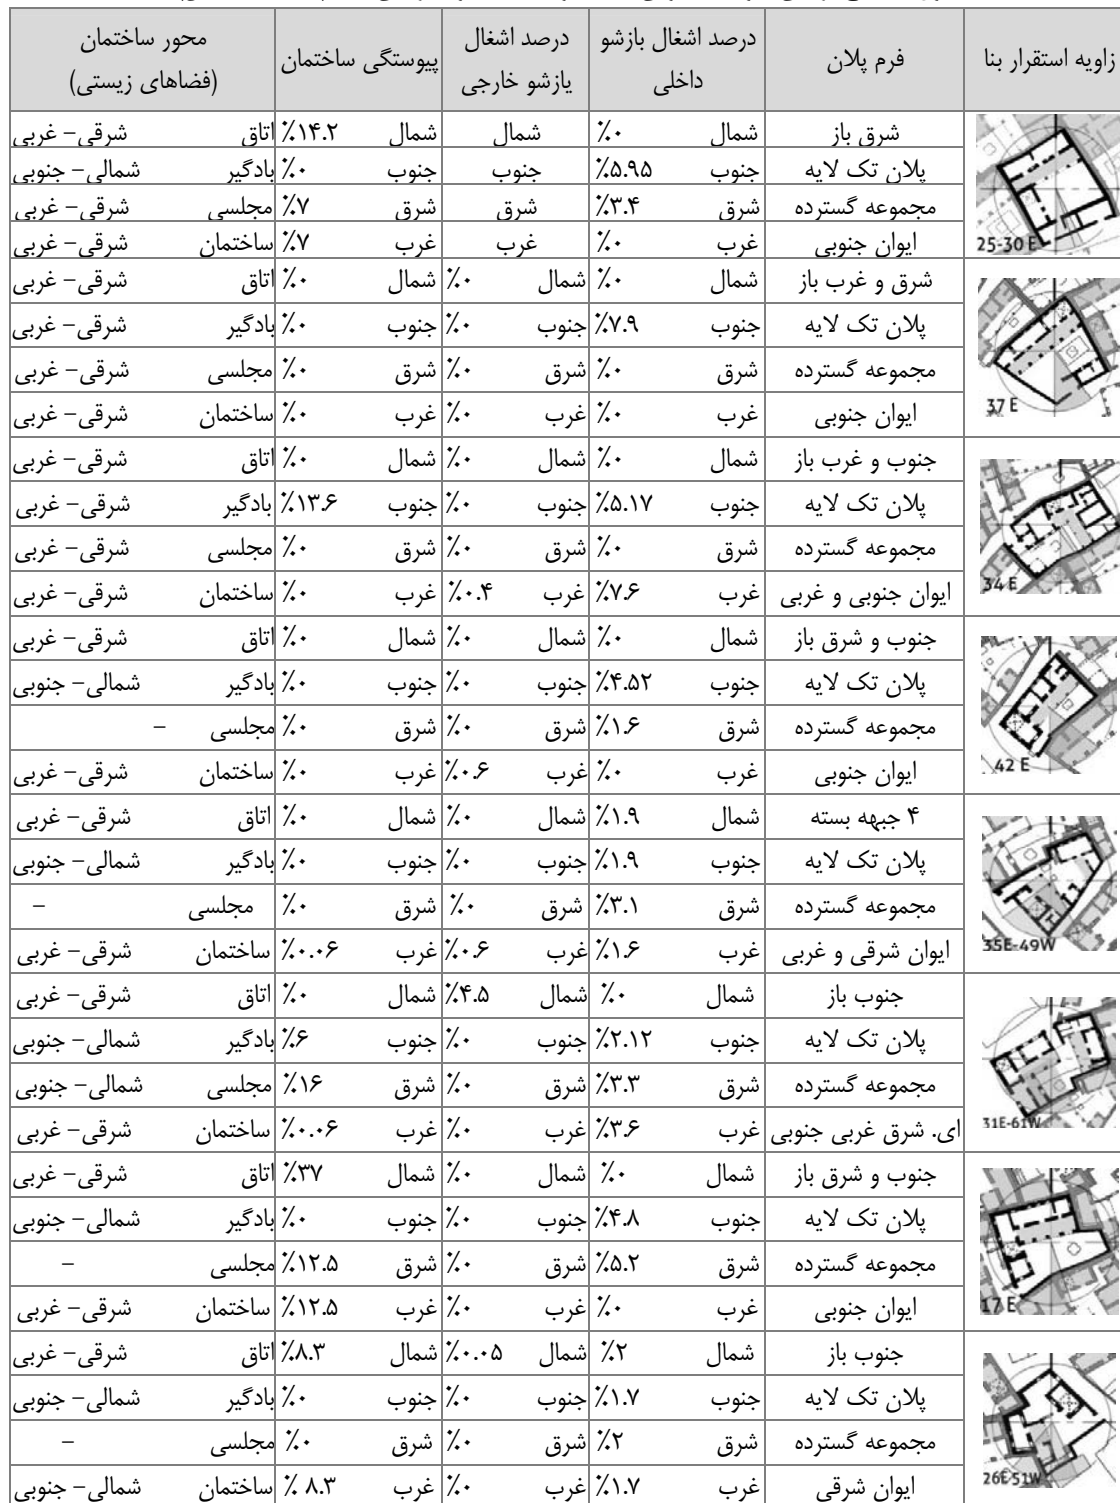 زاویه استقرار بنا | فرم پلان | درصد اشغال بازشو داخلی | درصد اشغال یازشو خارجی | پیوستگی ساختمان | محور ساختمان (فضاهای زیستی)
25-30 E
شرق باز | شمال ۰٪ | شمال | شمال ۱۴.۲٪ | اتاق شرقی– غربی
پلان تک لایه | جنوب ۵.۹۵٪ | جنوب | جنوب ۰٪ | بادگیر شمالی– جنوبی
مجموعه گسترده | شرق ۳.۴٪ | شرق | شرق ۷٪ | مجلسی شرقی– غربی
ایوان جنوبی | غرب ۰٪ | غرب | غرب ۷٪ | ساختمان شرقی– غربی
37 E
شرق و غرب باز | شمال ۰٪ | شمال ۰٪ | شمال ۰٪ | اتاق شرقی– غربی
پلان تک لایه | جنوب ۷.۹٪ | جنوب ۰٪ | جنوب ۰٪ | بادگیر شرقی– غربی
مجموعه گسترده | شرق ۰٪ | شرق ۰٪ | شرق ۰٪ | مجلسی شرقی– غربی
ایوان جنوبی | غرب ۰٪ | غرب ۰٪ | غرب ۰٪ | ساختمان شرقی– غربی
34 E
جنوب و غرب باز | شمال ۰٪ | شمال ۰٪ | شمال ۰٪ | اتاق شرقی– غربی
پلان تک لایه | جنوب ۵.۱۷٪ | جنوب ۰٪ | جنوب ۱۳.۶٪ | بادگیر شرقی– غربی
مجموعه گسترده | شرق ۰٪ | شرق ۰٪ | شرق ۰٪ | مجلسی شرقی– غربی
ایوان جنوبی و غربی | غرب ۷.۶٪ | غرب ۰.۴٪ | غرب ۰٪ | ساختمان شرقی– غربی
42 E
جنوب و شرق باز | شمال ۰٪ | شمال ۰٪ | شمال ۰٪ | اتاق شرقی– غربی
پلان تک لایه | جنوب ۴.۵۲٪ | جنوب ۰٪ | جنوب ۰٪ | بادگیر شمالی– جنوبی
مجموعه گسترده | شرق ۱.۶٪ | شرق ۰٪ | شرق ۰٪ | مجلسی –
ایوان جنوبی | غرب ۰٪ | غرب ۰.۶٪ | غرب ۰٪ | ساختمان شرقی– غربی
35E-49W
۴ جبهه بسته | شمال ۱.۹٪ | شمال ۰٪ | شمال ۰٪ | اتاق شرقی– غربی
پلان تک لایه | جنوب ۱.۹٪ | جنوب ۰٪ | جنوب ۰٪ | بادگیر شمالی– جنوبی
مجموعه گسترده | شرق ۳.۱٪ | شرق ۰٪ | شرق ۰٪ | مجلسی –
ایوان شرقی و غربی | غرب ۱.۶٪ | غرب ۰.۶٪ | غرب ۰.۰۶٪ | ساختمان شرقی– غربی
31E-61W
جنوب باز | شمال ۰٪ | شمال ۴.۵٪ | شمال ۰٪ | اتاق شرقی– غربی
پلان تک لایه | جنوب ۲.۱۲٪ | جنوب ۰٪ | جنوب ۶٪ | بادگیر شمالی– جنوبی
مجموعه گسترده | شرق ۳.۳٪ | شرق ۰٪ | شرق ۱۶٪ | مجلسی شمالی– جنوبی
ای. شرق غربی جنوبی | غرب ۳.۶٪ | غرب ۰٪ | غرب ۰.۰۶٪ | ساختمان شرقی– غربی
17 E
جنوب و شرق باز | شمال ۰٪ | شمال ۰٪ | شمال ۳۷٪ | اتاق شرقی– غربی
پلان تک لایه | جنوب ۴.۸٪ | جنوب ۰٪ | جنوب ۰٪ | بادگیر شمالی– جنوبی
مجموعه گسترده | شرق ۵.۲٪ | شرق ۰٪ | شرق ۱۲.۵٪ | مجلسی –
ایوان جنوبی | غرب ۰٪ | غرب ۰٪ | غرب ۱۲.۵٪ | ساختمان شرقی– غربی
26E-51W
جنوب باز | شمال ۲٪ | شمال ۰.۰۵٪ | شمال ۸.۳٪ | اتاق شرقی– غربی
پلان تک لایه | جنوب ۱.۷٪ | جنوب ۰٪ | جنوب ۰٪ | بادگیر شمالی– جنوبی
مجموعه گسترده | شرق ۲٪ | شرق ۰٪ | شرق ۰٪ | مجلسی –
ایوان شرقی | غرب ۱.۷٪ | غرب ۰٪ | غرب ۸.۳ ٪ | ساختمان شمالی– جنوبی